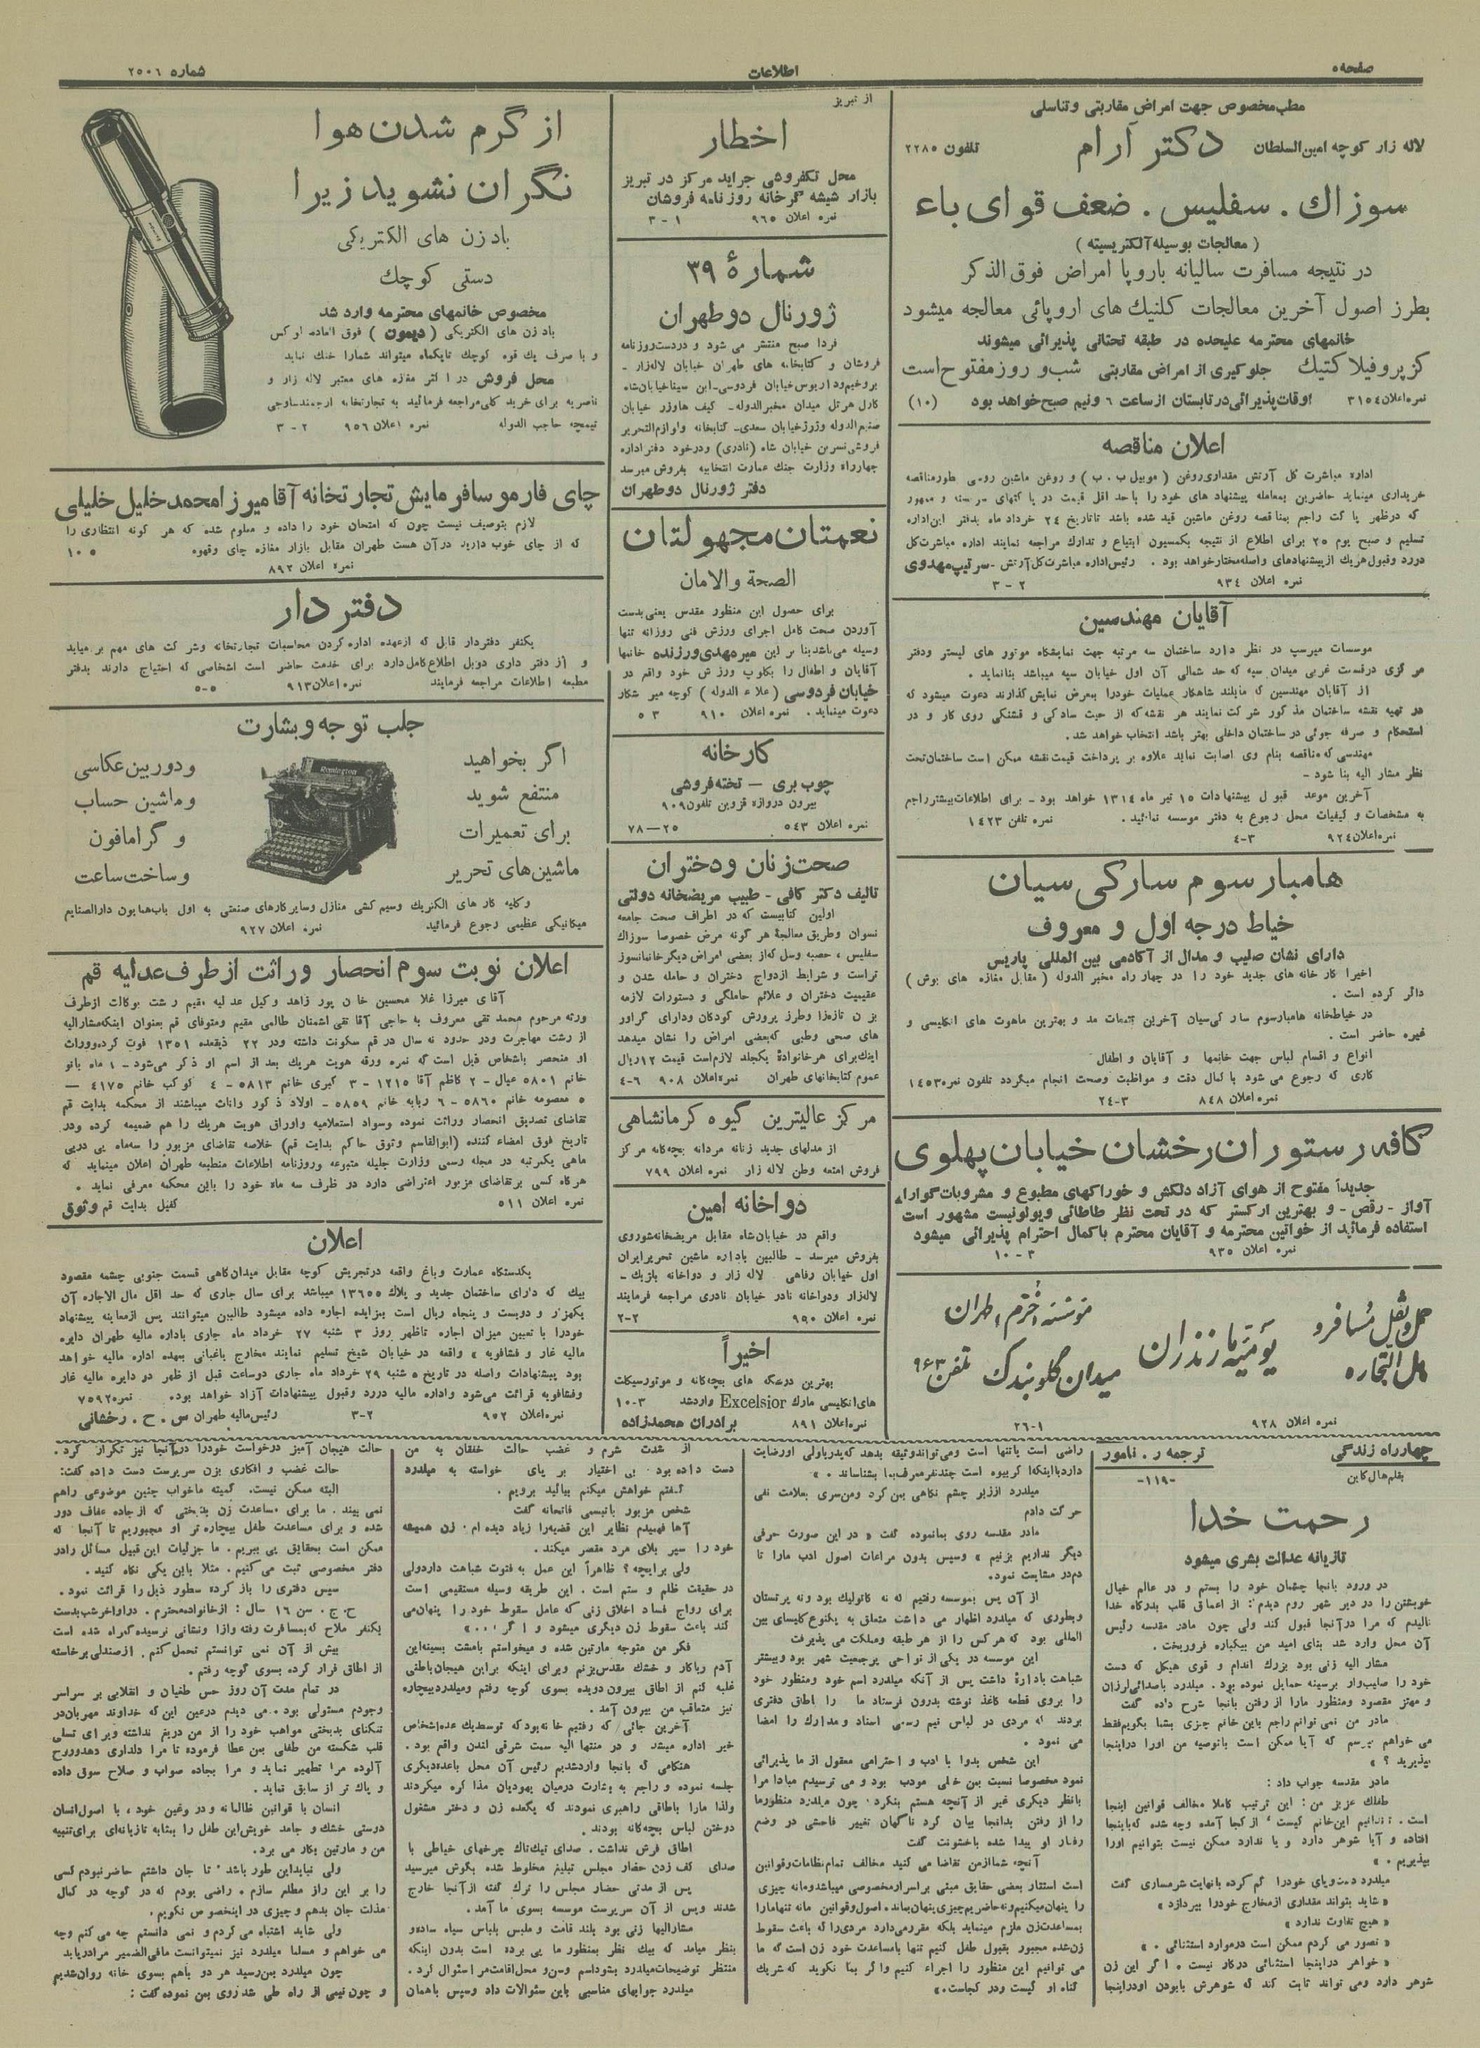 صفحه ۵
اطلاعات
شماره ۲۵۰۶
مطب مخصوص جهت امراض مقاربتی وتناسلی
لاله زار کوچه امین‌السلطان دکتر آرام تلفون ۲۲۸۵
سوزاك . سفلیس . ضعف قوای باء
( معالجات بوسیله الکتریسیته )
در نتیجه مسافرت سالیانه باروپا امراض فوق الذکر
بطرز اصول آخرین معالجات کلنیك های اروپائی معالجه میشود
خانمهای محترمه علیحده در طبقه تحتانی پذیرائی میشوند
کزپروفیلاکتیك جلوگیری از امراض مقاربتی شب و روز مفتوح است
نمره اعلان ۳۱۵۴ اوقات پذیرائی در تابستان از ساعت ۶ ونیم صبح خواهد بود (۱۰)
اعلان مناقصه
اداره مباشرت کل آرتش مقداری روغن ( موبیل ب . ب ) و روغن ماشین روسی بطور مناقصه
تسلیم و صبح یوم ۲۵ برای اطلاع از نتیجه بکمسیون ابتیاع و تدارك مراجعه نمایند اداره مباشرت کل
دررد وقبول هریك از پیشنهادهای واصله مختار خواهد بود . رئیس اداره مباشرت کل آرتش - سرتیپ مهدوی
نمره اعلان ۹۳۴ ۲ - ۳
آقایان مهندسین
موسسات میرسپ در نظر دارد ساختمان سه مرتبه جهت نمایشگاه موتور های لیستر ودفتر
مرکزی درقسمت غربی میدان سپه که حد شمالی آن اول خیابان سپه میباشد بنا نماید .
از آقایان مهندسین که مایلند شاهکار عملیات خودرا بمعرض نمایش گذارند دعوت میشود که
در تهیه نقشه ساختمان مذکور شرکت نمایند هر نقشه که از حیث سادگی و قشنگی روی کار و در
استحکام و صرفه جوئی در ساختمان داخلی بهتر باشد انتخاب خواهد شد .
مهندسی که مناقصه بنام وی اصابت نماید علاوه بر پرداخت قیمت نقشه ممکن است ساختمان تحت
نظر مشار الیه بنا شود -
آخرین موعد قبول پیشنهادات ۱۵ تیر ماه ۱۳۱۴ خواهد بود - برای اطلاعات بیشتر راجع
به مشخصات و کیفیات محل رجوع به دفتر موسسه نمائید . نمره تلفن ۱۴۲۳
نمره اعلان ۹۲۴ ۳-۴
هامبارسوم سارکی سیان
خیاط درجه اول و معروف
دارای نشان صلیب و مدال از آکادمی بین المللی پاریس
اخیرا کارخانه های جدید خود را در چهار راه مخبر الدوله ( مقابل مغازه های بوش )
دائر کرده است .
در خیاطخانه هامبارسوم سارکی‌سیان آخرین مد و بهترین ماهوت های انگلیسی و
غیره حاضر است .
انواع و اقسام لباس جهت خانمها و آقایان و اطفال
کاری که رجوع می شود با کمال دقت و مواظبت وصحت انجام میگردد تلفون نمره ۱۴۵۳
نمره اعلان ۸۴۸ ۳-۲۴
کافه رستوران رخشان خیابان پهلوی
جدیداً مفتوح از هوای آزاد دلکش و خوراکهای مطبوع و مشروبات گوارا
آواز - رقص - و بهترین ارکستر که در تحت نظر طاطائی ویولونیست مشهور است
استفاده فرمائید از خواتین محترمه و آقایان محترم باکمال احترام پذیرائی میشود
نمره اعلان ۹۳۵ ۳ - ۱۰
حمل و نقل مسافر و
مال التجاره
یومیه مازندران
میدان گلوبندك تلفن ۹۶۳
نمره اعلان ۹۲۸ ۱-۲۶
از تبریز
اخطار
محل تکفروشی جراید مرکز در تبریز
بازار شیشه گرخانه روزنامه فروشان
نمره اعلان ۹۶۵ ۱ - ۳
شمارهٔ ۳۹
ژورنال دوطهران
فردا صبح منتشر می شود و دردست روزنامه
فروشان و کتابخانه های طهران خیابان لاله‌زار -
چهارراه وزارت جنك عمارت انتخابیه بفروش میرسد
دفتر ژورنال دوطهران
نعمتان مجهولتان
الصحة والامان
برای حصول این منظور مقدس یعنی بدست
آوردن صحت کامل اجرای ورزش فنی روزانه تنها
وسیله می‌باشد بنا بر این میرمهدی ورزنده خانمها
آقایان و اطفال را بکلوپ ورزش خود واقع در
خیابان فردوسی ( علاء الدوله ) کوچه میر شکار
دعوت مینماید . نمره اعلان ۹۱۰ ۳ ۵
کارخانه
چوب بری — تخته فروشی
بیرون دروازه قزوین تلفون ۹۰۹
نمره اعلان ۵۴۳ ۲۵—۷۸
صحت زنان ودختران
تالیف دکتر کافی - طبیب مریضخانه دولتی
اولین کتابیست که در اطراف صحت جامعه
نسوان وطریق معالجهٔ هر گونه مرض خصوصا سوزاك
سفلیس ، حصبه وسل که از بعضی امراض دیگر خانمانسوز
تر است و شرایط ازدواج دختران و حامله شدن و
عقیمیت دختران و علائم حاملگی و دستورات لازمه
بزن تازه‌زا وطرز پرورش کودکان ودارای گراور
های صحی وطبی که بعضی امراض را نشان میدهد
اینك برای هر خانوادهٔ یکجلد لازم است قیمت ۱۲ریال
عموم کتابخانهای طهران نمره اعلان ۹۰۸ ۶-۴
مرکز عالیترین گیوه کرمانشاهی
از مدلهای جدید زنانه مردانه بچه‌گانه مرکز
فروش امتعه وطن لاله زار نمره اعلان ۷۹۹
دواخانه امین
واقع در خیابان شاه مقابل مریضخانه شوروی
بفروش میرسد - طالبین باداره ماشین تحریر ایران
اول خیابان رفاهی لاله زار و دواخانه بلژیك -
لاله‌زار ودواخانه نادر خیابان نادری مراجعه فرمایند
نمره اعلان ۹۹۰ ۲-۲
اخیراً
بهترین درشکه های بچه‌گانه و موتورسیکلت
های انگلیسی مارك Excelsior وارد شد ۳-۱۰
نمره اعلان ۸۹۱ برادران محمدزاده
از گرم شدن هوا
نگران نشوید زیرا
بادزن های الکتریکی
دستی کوچك
مخصوص خانمهای محترمه وارد شد
بادزن های الکتریکی ( دیمون ) فوق العاده لوکس
و با صرف یك قوه کوچك تایکماه میتواند شمارا خنك نماید
محل فروش در اکثر مغازه های معتبر لاله زار و
تیمچه حاجب الدوله نمره اعلان ۹۵۶ ۲ - ۳
چای فارموسافرمایش تجارتخانه آقامیرزا محمدخلیل خلیلی
لازم بتوصیف نیست چون که امتحان خود را داده و معلوم شده که هر گونه انتظاری را
که از چای خوب دارید درآن هست طهران مقابل بازار مغازه چای وقهوه ۱۰ ۵
نمره اعلان ۸۹۲
دفتر دار
یکنفر دفتردار قابل که ازعهده اداره کردن محاسبات تجارتخانه وشرکت های مهم بر میاید
و از دفتر داری دوبل اطلاع کامل دارد برای خدمت حاضر است اشخاصی که احتیاج دارند بدفتر
مطبعه اطلاعات مراجعه فرمایند نمره اعلان ۹۱۳ ۵-۵
جلب توجه وبشارت
اگر بخواهید
منتفع شوید
برای تعمیرات
ماشین‌های تحریر
Remington
ودوربین عکاسی
وماشین حساب
و گرامافون
وساخت ساعت
وکلیه کار های الکتریك وسیم کشی منازل وسایر کارهای صنعتی به اول باب همایون دارالصنایع
میکانیکی عظیمی رجوع فرمائید. نمره اعلان ۹۲۷
اعلان نوبت سوم انحصار وراثت از طرف عدلیه قم
آقای میرزا غلا محسین خان پور زاهد وکیل عدلیه مقیم رشت بوکالت ازطرف
از رشت مهاجرت ودر حدود نه سال در قم سکونت داشته ودر ۲۲ ذیقعده ۱۳۵۱ فوت کرده ووراث
او منحصر باشخاص ذیل است که نمره ورقه هویت هریك بعد از اسم او ذکر می‌شود - ۱ ماه بانو
خانم ۵۸۰۱ عیال - ۲ کاظم آقا ۱۲۱۵ - ۳ کبری خانم ۵۸۱۳ - ۴ کوکب خانم ۴۱۷۵ —
۵ معصومه خانم ۵۸۶۰ - ۶ ربابه خانم ۵۸۵۹ - اولاد ذکور واناث میباشند از محکمه بدایت قم
تقاضای تصدیق انحصار وراثت نموده وسواد استعلامیه واوراق هویت هریك را هم ضمیمه کرده ودر
تاریخ فوق امضاء کننده (ابوالقاسم وثوق حاکم بدایت قم) خلاصه تقاضای مزبور را سه‌ماه پی درپی
ماهی یکمرتبه در مجله رسمی وزارت جلیله متبوعه وروزنامه اطلاعات منطبعه طهران اعلان مینماید که
هرگاه کسی برتقاضای مزبور اعتراضی دارد در ظرف سه ماه خود را باین محکمه معرفی نماید .
نمره اعلان ۵۱۱ کفیل بدایت قم وثوق
اعلان
یکدستگاه عمارت وباغ واقعه درتجریش کوچه مقابل میدان‌گاهی قسمت جنوبی چشمه مقصود
بیك که دارای ساختمان جدید و پلاك ۱۳۶۵۵ میباشد برای سال جاری که حد اقل مال الاجاره آن
یکهزار و دویست و پنجاه ریال است بمزایده اجاره داده میشود طالبین میتوانند پس ازمعاینه پیشنهاد
خودرا با تعیین میزان اجاره تاظهر روز ۳ شنبه ۲۷ خرداد ماه جاری باداره مالیه طهران دایره
مالیه غار و فشافویه » واقعه در خیابان شیخ تسلیم نمایند مخارج باغبانی بعهده اداره مالیه خواهد
بود پیشنهادات واصله در تاریخ ۵ شنبه ۲۹ خرداد ماه جاری دوساعت قبل از ظهر در دایره مالیه غار
وفشافویه قرائت می‌شود واداره مالیه دررد وقبول پیشنهادات آزاد خواهد بود. نمره ۷۵۹۲
نمره اعلان ۹۵۲ ۲-۳ رئیس مالیه طهران س . ح . رخشانی
چهارراه زندگی
ترجمه ر . نامور
بقلم هال کاین
-۱۱۹-
رحمت خدا
تازیانه عدالت بشری میشود
در ورود بانجا چشمان خود را بستم و در عالم خیال
خویشتن را در دیر شهر روم دیدم : از اعماق قلب بدرگاه خدا
نالیدم که مرا درآنجا قبول کند ولی چون مادر مقدسه رئیس
آن محل وارد شد بنای امید من بیکباره فروریخت .
مشار الیه زنی بود بزرك اندام و قوی هیکل که دست
خود را صلیب‌وار برسینه حمایل نموده بود. میلدرد باصدائی لرزان
و مهتز مقصود ومنظور مارا از رفتن بانجا شرح داده گفت
مادر من نمی توانم راجع باین خانم چیزی بشما بگویم فقط
می خواهم بپرسم که آیا ممکن است باتوصیه من اورا دراینجا
بپذیرید ؟ »
مادر مقدسه جواب داد :
طفلك عزیز من : این ترتیب کاملا مخالف قوانین اینجا
است . ندانیم این خانم کیست ، از کجا آمده وچه شده که باینجا
افتاده و آیا شوهر دارد و یا ندارد ممکن نیست بتوانیم اورا
بپذیریم . »
میلدرد دست وپای خودرا گم کرده بانهایت شرمساری گفت
« شاید بتواند مقداری ازمخارج خودرا بپردازد »
« هیچ تفاوت ندارد »
« تصور می کردم ممکن است درموارد استثنائی . »
« خواهر دراینجا استثنائی درکار نیست . اگر این زن
شوهر دارد ومی تواند ثابت کند که شوهرش بابودن اودراینجا
راضی است یاتنها است ومی‌تواند وثیقه بدهد که پدرباولی اورضایت
دارد یا اینکه اگر بیوه است چند نفر معرف بما بشناساند . »
میلدرد اززیر چشم نگاهی بمن کرد ومن سری بعلامت نفی
حرکت دادم
مادر مقدسه روی بمانموده گفت « در این صورت حرفی
دیگر نداریم بزنیم » وسپس بدون مراعات اصول ادب مارا تا
دم‌در مشایعت نمود.
از آن پس بموسسه رفتیم که نه کاتولیك بود ونه پرتستان
وبطوری که میلدرد اظهار می داشت متعلق به یکنوع کلیسای بین
المللی بود که هرکس را از هر طبقه ومملکت می پذیرفت
این موسسه در یکی از نواحی پرجمعیت شهر بود وبیشتر
شباهت بادارهٔ داشت پس از آنکه میلدرد اسم خود ومنظور خود
را بروی قطعه کاغذ نوشته بدرون فرستاد ما را اطاق دفتری
بردند که مردی در لباس نیم رسمی اسناد ومدارك را امضا
می نمود .
این شخص بدوا با ادب و احترامی معقول از ما پذیرائی
نمود مخصوصا نسبت بمن خیلی مودب بود و می ترسیدم مبادا مرا
بانظر دیگری غیر از آنچه هستم بنگرد . چون میلدرد منظورما
را از رفتن بدانجا بیان کرد ناگهان تغییر فاحشی در وضع
رفتار او پیدا شده باخشونت گفت
آنچه شما ازمن تقاضا می کنید مخالف تمام نظامات وقوانین
است استتار بعضی حقایق مبنی براسرار مخصوصی میباشد ومانه چیزی
زن شده مجبور بقبول طفل کنیم تنها با مساعدت خود زن است که ما
می توانیم این منظور را اجراء کنیم والا گر بما نگوید که شریك
گناه او کیست ودر کجاست. »
از شدت شرم و غضب حالت خفقان به من
دست داده بود بی اختیار بر پای خواسته به میلدرد
گفتم خواهش میکنم بیائید برویم .
شخص مزبور باتبسمی فاتحانه گفت
آها فهمیدم نظایر این قضیه‌را زیاد دیده ام . زن همیشه
خود را سپر بلای مرد مقصر میکند .
ولی برایچه ؟ ظاهراً این عمل به فتوت شباهت دارد ولی
در حقیقت ظلم و ستم است . این طریقه وسیله مستقیمی است
برای رواج فساد اخلاق زنی که عامل سقوط خود را پنهان می
کند باعث سقوط زن دیگری میشود و اگر ۰۰۰ »
فکر من متوجه مارتین شده و میخواستم بامشت بسینه این
آدم ریاکار و خشك مقدس بزنم وبرای اینکه براین هیجان باطنی
غلبه کنم از اطاق بیرون دویده بسوی کوچه رفتم ومیلدرد بیچاره
نیز متعاقب من بیرون آمد .
آخرین جائی که رفتیم خانه بود که توسط یك عده اشخاص
خیر اداره میشد و در منتها الیه سمت شرقی لندن واقع بود .
هنگامی که بانجا وارد شدیم رئیس آن محل باعده دیگری
جلسه نموده و راجع به بشارت درمیان یهودیان مذاکره میکردند
ولذا مارا باطاقی راهبری نمودند که یکعده زن و دختر مشغول
دوختن لباس بچه‌گانه بودند .
اطاق فرش نداشت . صدای تیك‌تاك چرخهای خیاطی با
صدای کف زدن حضار مجلس تبلیغ مخلوط شده بگوش میرسید
پس از مدتی حضار مجلس را ترك گفته ازآنجا خارج
شدند وپس از آن سرپرست موسسه بسوی ما آمد .
مشارالیها زنی بود بلند قامت و ملبس بلباس سیاه ساده و
بنظر میامد که بیك نظر بمنظور ما پی برده است بدون اینکه
منتظر توضیحات میلدرد بشود اسم وسن و محل اقامت مرا سئوال کرد .
میلدرد جوابهای مناسبی باین سئوالات داد وسپس باهمان
حالت هیجان آمیز درخواست خودرا در آنجا نیز تکرار کرد .
حالت غضب و افکاری بزن سرپرست دست داده گفت:
البته ممکن نیست. کمیته ماخواب چنین موضوعی راهم
نمی بیند . ما برای مساعدت زن بدبختی که از جاده عفاف دور
شده و برای مساعدت طفل بیچاره تر او مجبوریم تا آنجا که
ممکن است بحقایق پی ببریم . ما جزئیات این قبیل مسائل رادر
دفتر مخصوصی ثبت می کنیم . مثلا باین یکی نگاه کنید .
سپس دفتری را باز کرده سطور ذیل را قرائت نمود .
ح . ج . سن ۱۶ سال : ازخانواده محترم . دراواخرشب بدست
یکنفر ملاح که بمسافرت رفته وازاو نشانی نرسیده گمراه شده است
بیش از آن نمی توانستم تحمل کنم . ازصندلی برخاسته
از اطاق فرار کرده بسوی کوچه رفتم .
در تمام مدت آن روز حس طغیان و انقلابی بر سراسر
وجودم مستولی بود . می دیدم درعین این که خداوند مهربان در
تنگنای بدبختی مواهب خود را از من دریغ نداشته وبرای تسلی
قلب شکسته من طفلی بمن عطا فرموده تا مرا دلداری دهد و روح
آلوده مرا تطهیر نماید و مرا بجاده صواب و صلاح سوق داده
و پاك تر از سابق نماید .
انسان با قوانین ظالمانه ودروغین خود ، با اصول انسان
درستی خشك و جامد خویش این طفل را بمثابه تازیانه‌ای برای تنبیه
من و مارتین بکار می برد .
ولی نباید این طور باشد ، تا جان داشتم حاضر نبودم کسی
را بر این راز مطلع سازم . راضی بودم که در کوچه در کمال
مذلت جان بدهم و چیزی در اینخصوص نگویم .
ولی شاید اشتباه می کردم و نمی دانستم چه می کنم وچه
می خواهم و مسلما میلدرد نیز نمیتوانست مافی‌الضمیر مرا دریابد
چون میلدرد بمن رسید هر دو باهم بسوی خانه روان شدیم
و چون نیمی از راه طی شد روی بمن نموده گفت :